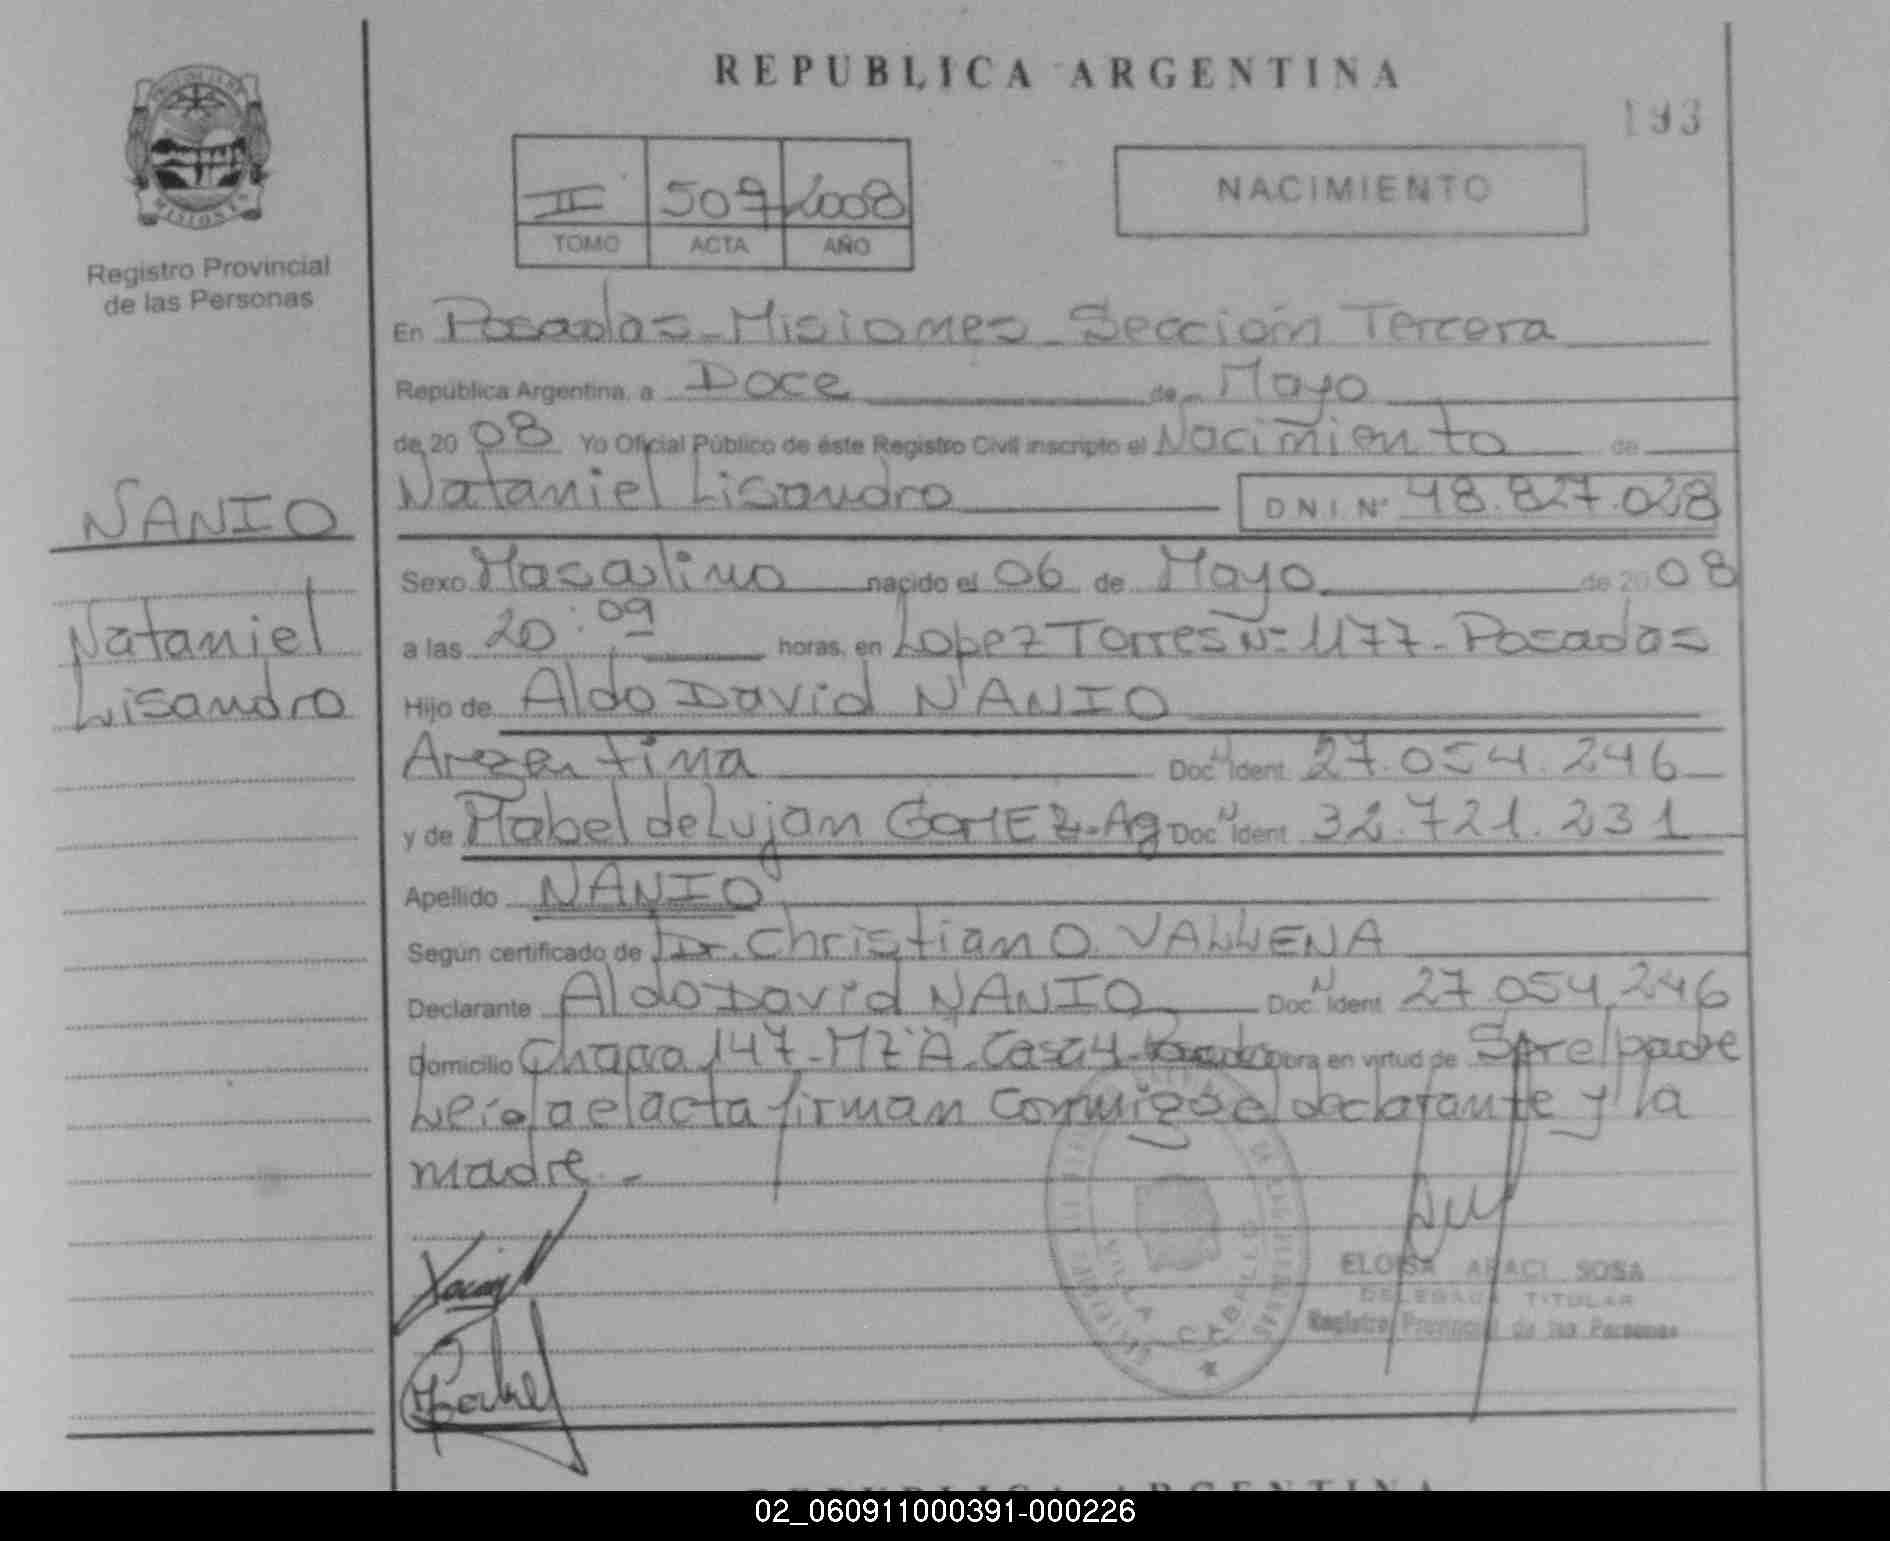 REPUBLICA ARGENTINA
193
II 507 2008
TOMO ACTA AÑO
NACIMIENTO
MISIONES
Registro Provincial
de las Personas
En Posadas - Misiones - Sección Tercera
República Argentina, a Doce de Mayo
de 2008 Yo Oficial Público de éste Registro Civil inscripto el Nacimiento de
Nataniel Lisandro D N I. Nº 48.827.028
NANIO
Nataniel
Lisandro
Sexo Masculino nacido el 06 de Mayo de 2008
a las 20:09 horas, en Lopez Torres Nº 1177 - Posadas
Hijo de Aldo David NANIO
Argentina Doc. N Ident. 27.054.246
y de Mabel de Lujan GOMEZ - Ag Doc. N Ident. 32.721.231
Apellido NANIO
Según certificado de Dr. Christian O. VALLENA
Declarante Aldo David NANIO Doc. N Ident. 27.054.246
Domicilio Chacra 147 - MZ A - Casa 4 - Posadas obra en virtud de Ser el padre
Leída el acta firman conmigo el declarante y la
madre. -
VILLA CABELLO
ELOISA ARACI SOSA
DELEGADA TITULAR
Registro Provincial de las Personas
REPUBLICA ARGENTINA
02_060911000391-000226